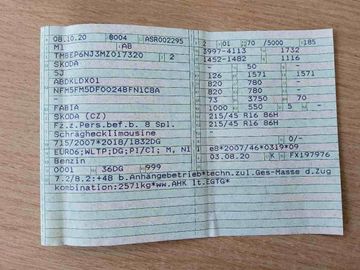 08.10.20 8004 ASR002295
M1 AB
TMBEP6NJ3MZ017320 2
SKODA
5J
ABDKLDX01
NFM5FM5DF0024BFN1C8A
FABIA
SKODA (CZ)
Fz.z.Pers.bef.b. 8 Spl.
Schräghecklimousine
715/2007*2018/1832DG
EURO6;WLTP;DG;PI/CI; M, N1 I
Benzin
0001 36DG 999
2 01 70 /5000 185
3997-4113 1732
1452-1482 1116
- 50 -
126 1571 1571
820 780 -
820 780 -
73 3750 70
1000 550 5 -
215/45 R16 86H
215/45 R16 86H
-
0/-
e8*2007/46*0319*09
03.08.20 K FX197976
7.2/8.2:+48 b.Anhängebetrieb*techn.zul.Ges-Masse d.Zug
kombination:2571kg*ww.AHK lt.EGTG*